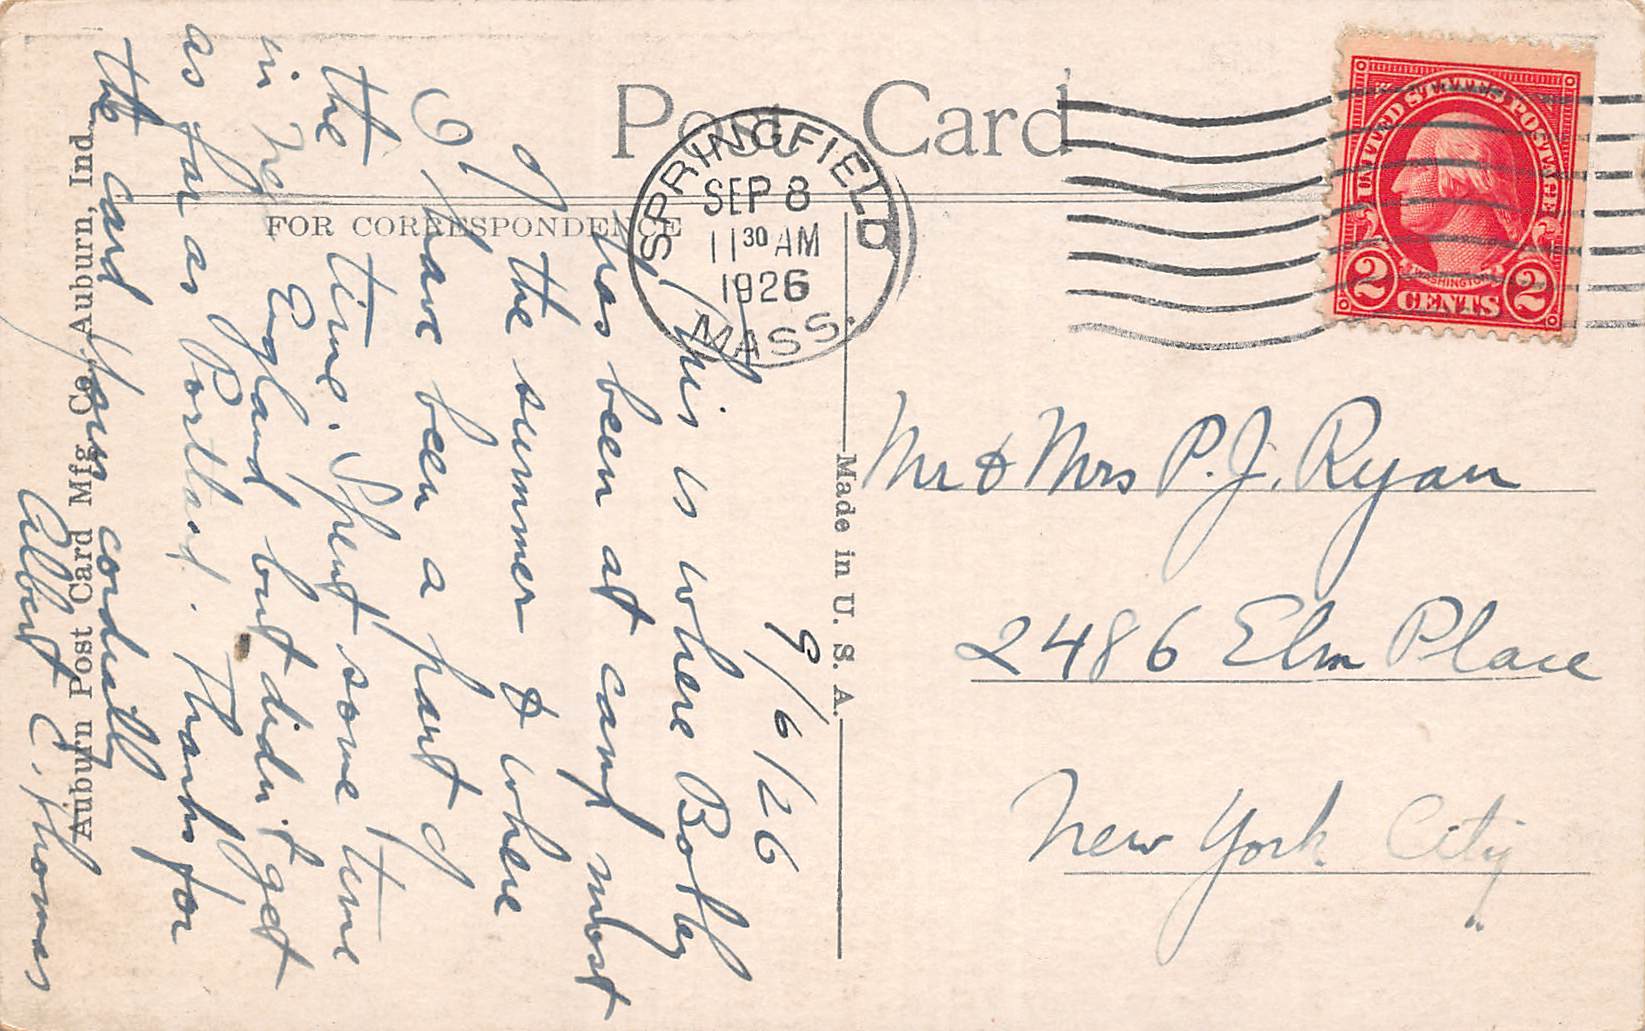 Post Card
FOR CORRESPONDENCE
SPRINGFIELD
SEP 8
11 30 AM
1926
MASS.
UNITED STATES POSTAGE
WASHINGTON
2 CENTS 2
9/6/26
This is where
has been at camp most
of the summer & where
I have been a part of
the time. Spent some time
in New England but didn't get
as far as Portland. Thanks for
the card Yours cordially
Albert E. Thomas
Auburn Post Card Mfg. Co. Auburn, Ind.
Made in U. S. A.
Mr & Mrs P. J. Ryan
2486 Elm Place
New York City